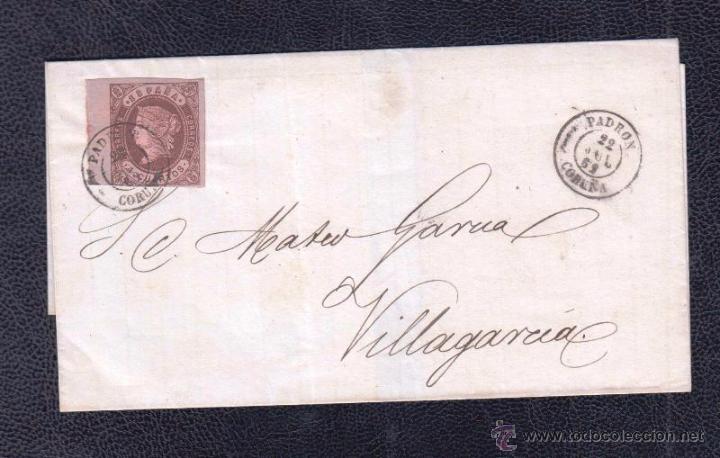 ESPAÑA
CORREOS CORREOS
PADRON
CORUÑA
PADRON
22
JUL
63
CORUÑA
S. C. Mateo Garcia
Villagarcía
www.todocoleccion.net